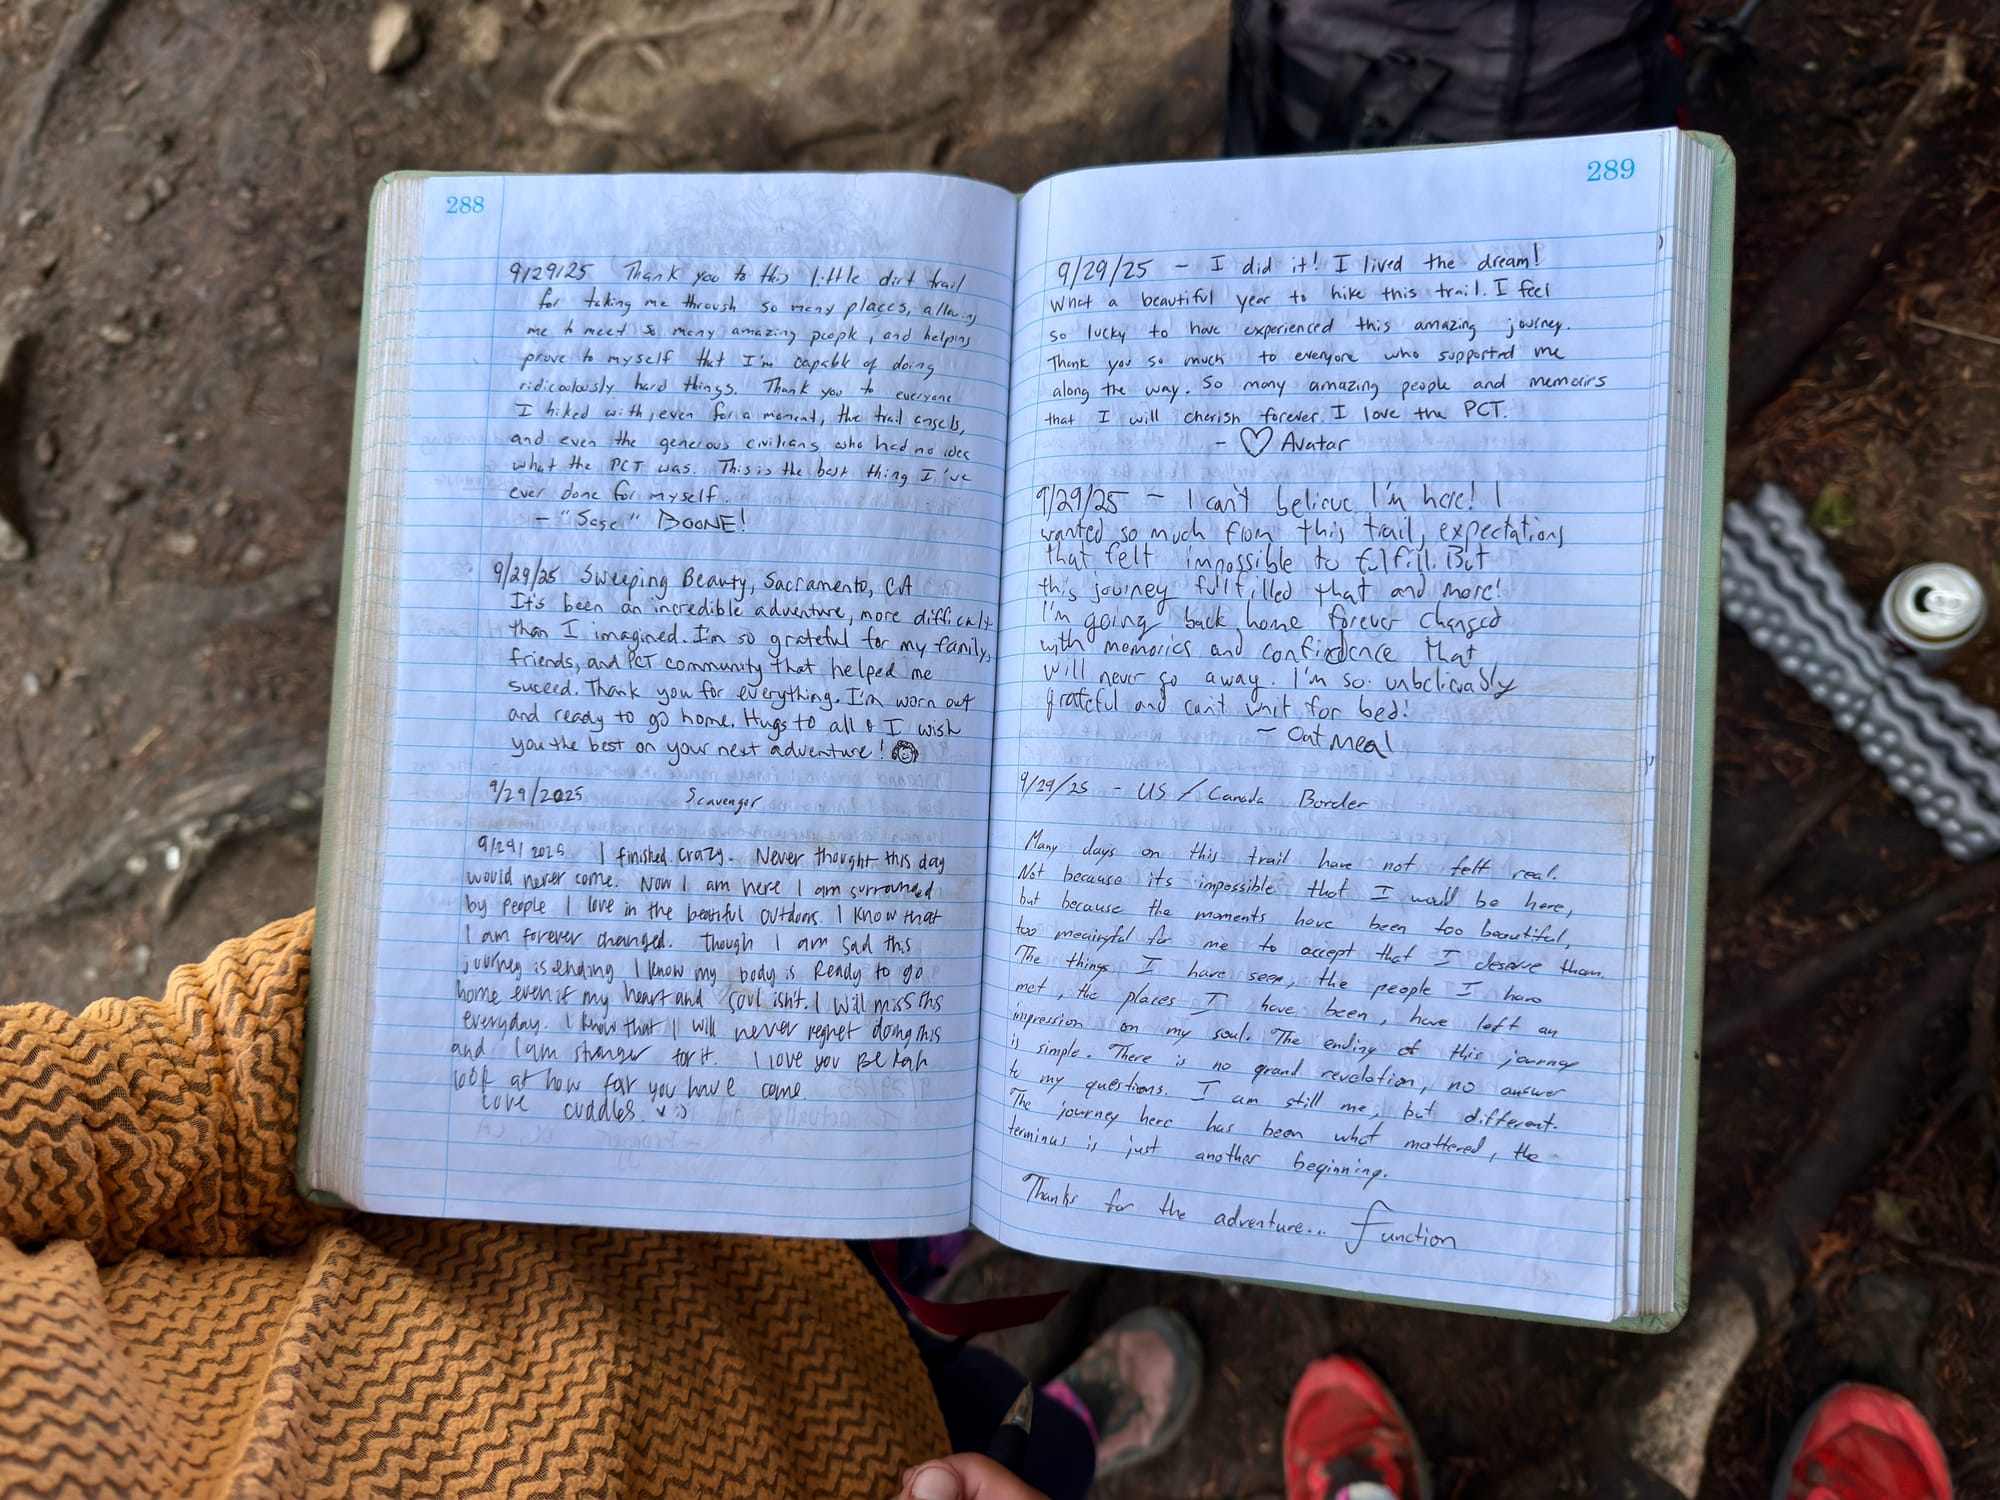 288
9/29/25 Thank you to this little dirt trail
for taking me through so many places, allowing
me to meet so many amazing people, and helping
prove to myself that I'm capable of doing
ridicoolously hard things. Thank you to everyone
I hiked with, even for a moment, the trail angels,
and even the generous civilians who had no idea
what the PCT was. This is the best thing I've
ever done for myself.
- "Sage" BOONE!
9/29/25 Sweeping Beauty, Sacramento, CA
It's been an incredible adventure, more difficult
than I imagined. I'm so grateful for my family,
friends, and PCT community that helped me
suceed. Thank you for everything. I'm worn out
and ready to go home. Hugs to all & I wish
you the best on your next adventure!
9/29/2025 Scavenger
9/29/2025 I finished. crazy. Never thought this day
would never come. Now I am here I am surrounded
by people I love in the beatiful outdoors. I know that
I am forever changed. Though I am sad this
journey is ending I know my body is Ready to go
home even if my heart and soul isn't. I will miss this
everyday. I know that I will never regret doing this
and I am stronger for it. I love you
look at how far you have come.
Love cuddles. ♥ :)
289
9/29/25 - I did it! I lived the dream!
What a beautiful year to hike this trail. I feel
so lucky to have experienced this amazing journey.
Thank you so much to everyone who supported me
along the way. So many amazing people and memories
that I will cherish forever. I love the PCT.
- ♡ Avatar
9/29/25 - I can't believe I'm here! I
wanted so much from this trail, expectations
that felt impossible to fulfill. But
this journey fullfilled that and more!
I'm going back home forever changed
with memories and confidence that
will never go away. I'm so unbelievably
grateful and can't wait for bed!
- Oatmeal
9/29/25 - US / Canada Border
Many days on this trail have not felt real.
Not because its impossible that I would be here,
but because the moments have been too beautiful,
too meaingful for me to accept that I deserve them.
The things I have seen, the people I have
met, the places I have been, have left an
impression on my soul. The ending of this journey
is simple. There is no grand revelation, no answer
to my questions. I am still me, but different.
The journey here has been what mattered, the
terminus is just another beginning.
Thanks for the adventure... Function